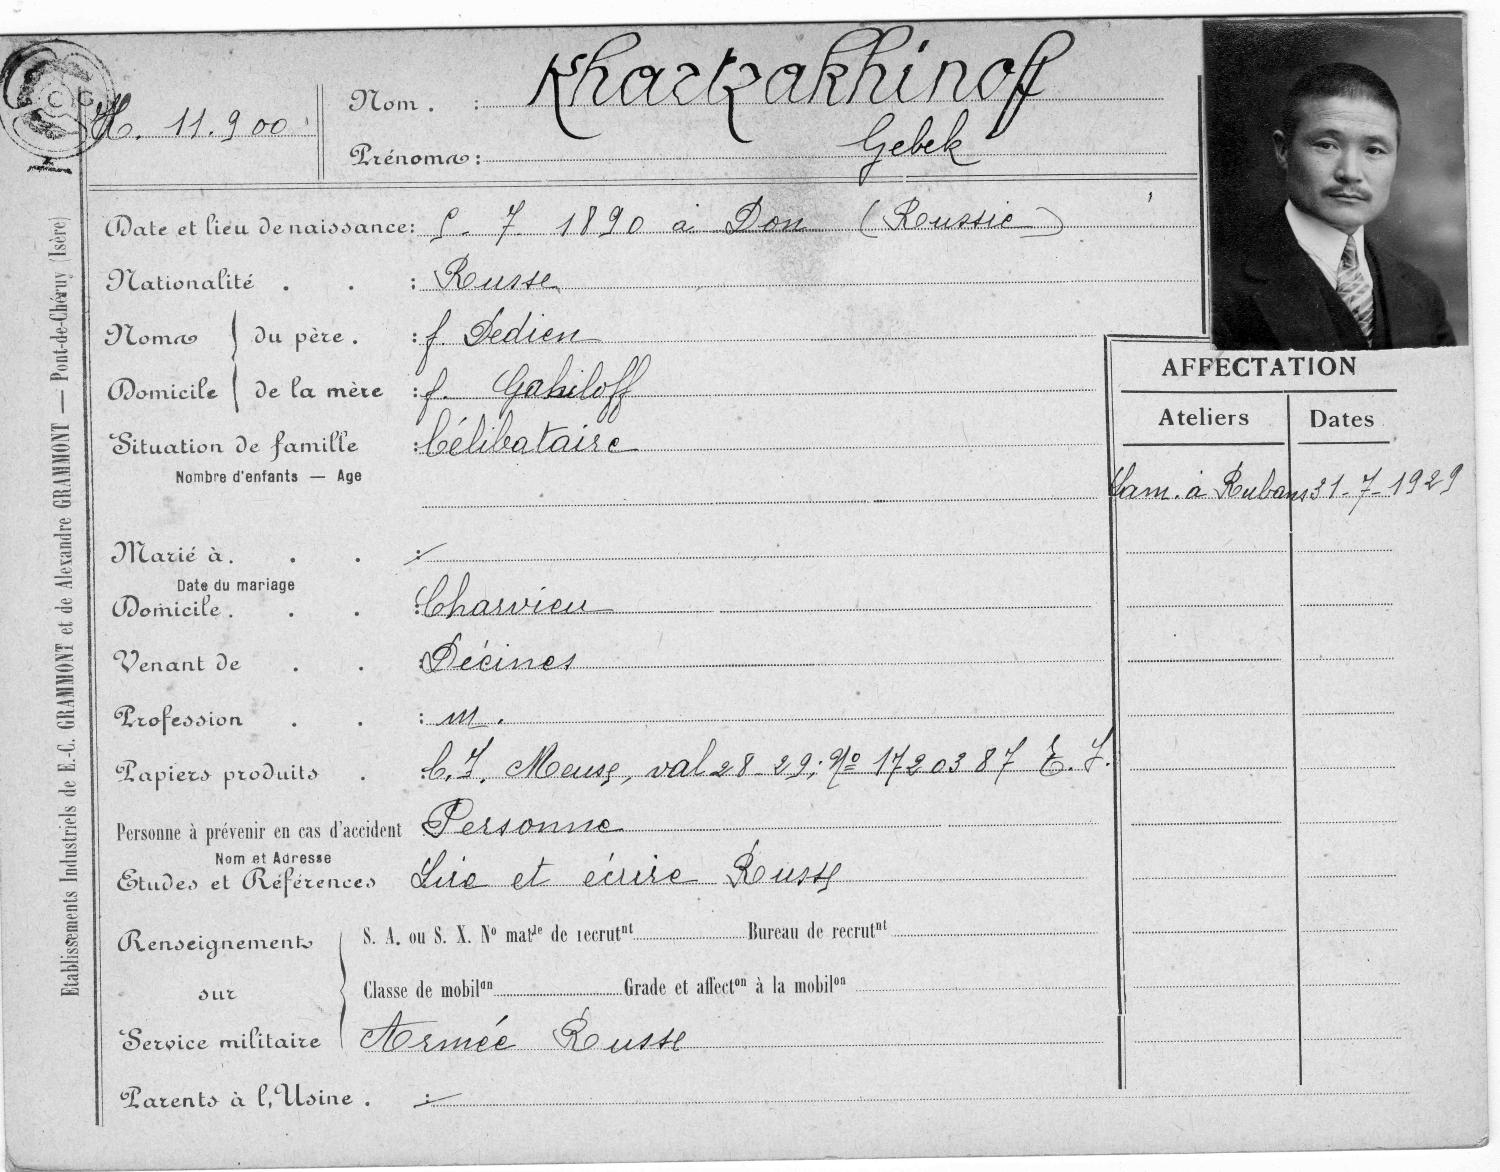 C G
H. 11.900
Nom. : Khartzakhinoff
Prénoms: Gebek
Date et lieu de naissance: 5. 7. 1890 à Don (Russie)
Nationalité . . : Russe
Noms du père. : f Dedien
Domicile de la mère : f. Gahiloff
Situation de famille : Célibataire
Nombre d'enfants — Age
Marié à. . . :
Date du mariage
Domicile. . . : Charvieu
Venant de . . : Décines
Profession . . : m.
Papiers produits . : C.I. Meuse, val 28-29; No 1720387 E. J.
Personne à prévenir en cas d'accident Personne
Nom et Adresse
Etudes et Références Lire et écrire Russe
Renseignements sur Service militaire
S. A. ou S. X. No matle de recrutnt Bureau de recrutnt
Classe de mobilon Grade et affecton à la mobilon
Armée Russe
Parents à l'Usine . :
AFFECTATION
Ateliers Dates
Cam. à Rubans 31-7-1929
Etablissements Industriels de E.-C. GRAMMONT et de Alexandre GRAMMONT — Pont-de-Chéruy (Isère)